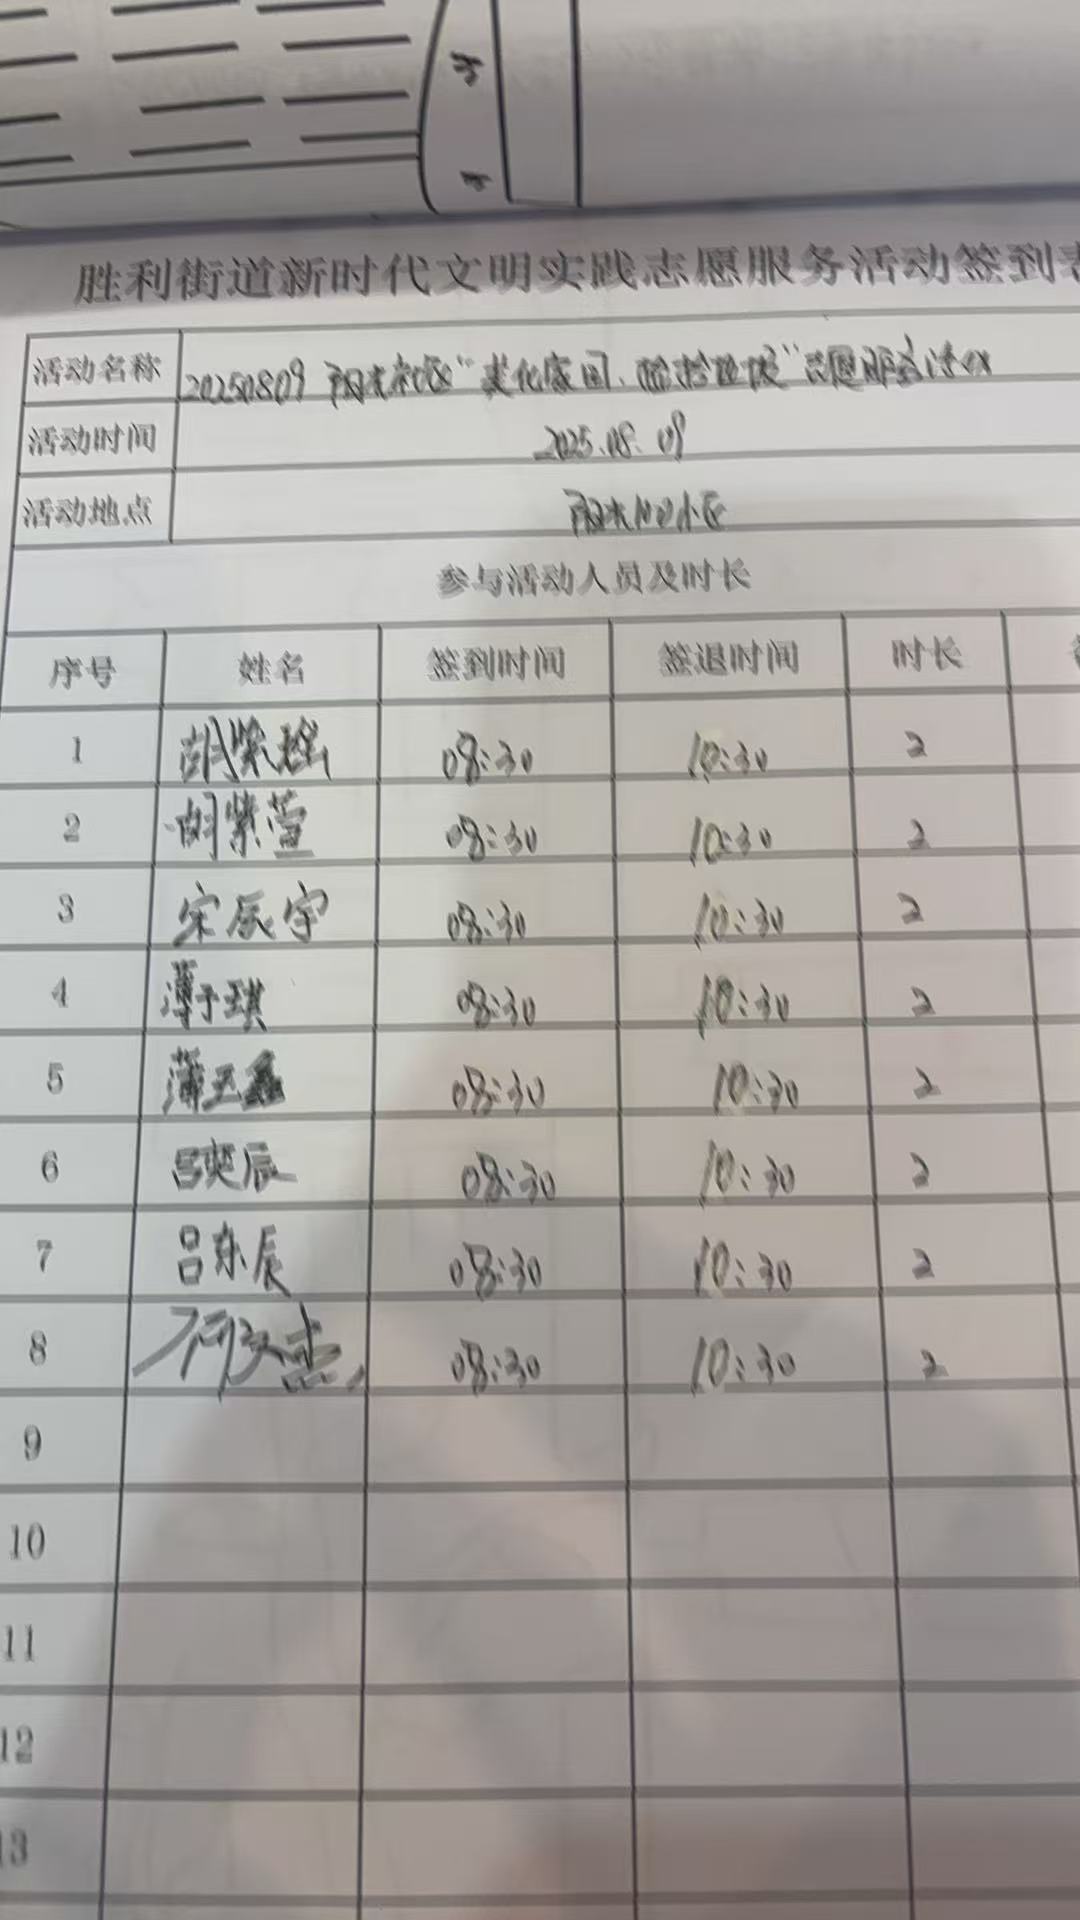 胜利街道新时代文明实践志愿服务活动签到
活动名称 20250809 阳光社区“美化家园、捡拾垃圾”志愿服务活动
活动时间 2025.08.09
活动地点 阳光100小区
参与活动人员及时长
序号 姓名 签到时间 签退时间 时长
1 胡紫瑶 08:30 10:30 2
2 胡紫萱 08:30 10:30 2
3 宋辰宇 08:30 10:30 2
4 薄于琪 08:30 10:30 2
5 薄玉鑫 08:30 10:30 2
6 吕奕辰 08:30 10:30 2
7 吕东辰 08:30 10:30 2
8 08:30 10:30 2
9
10
11
12
13